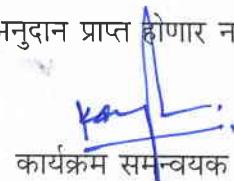 अनुदान प्राप्त होणार न
कार्यक्रम समन्वयक